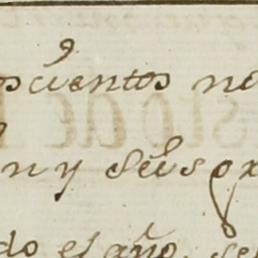 oscientos no
n y seis ox
do el año. se